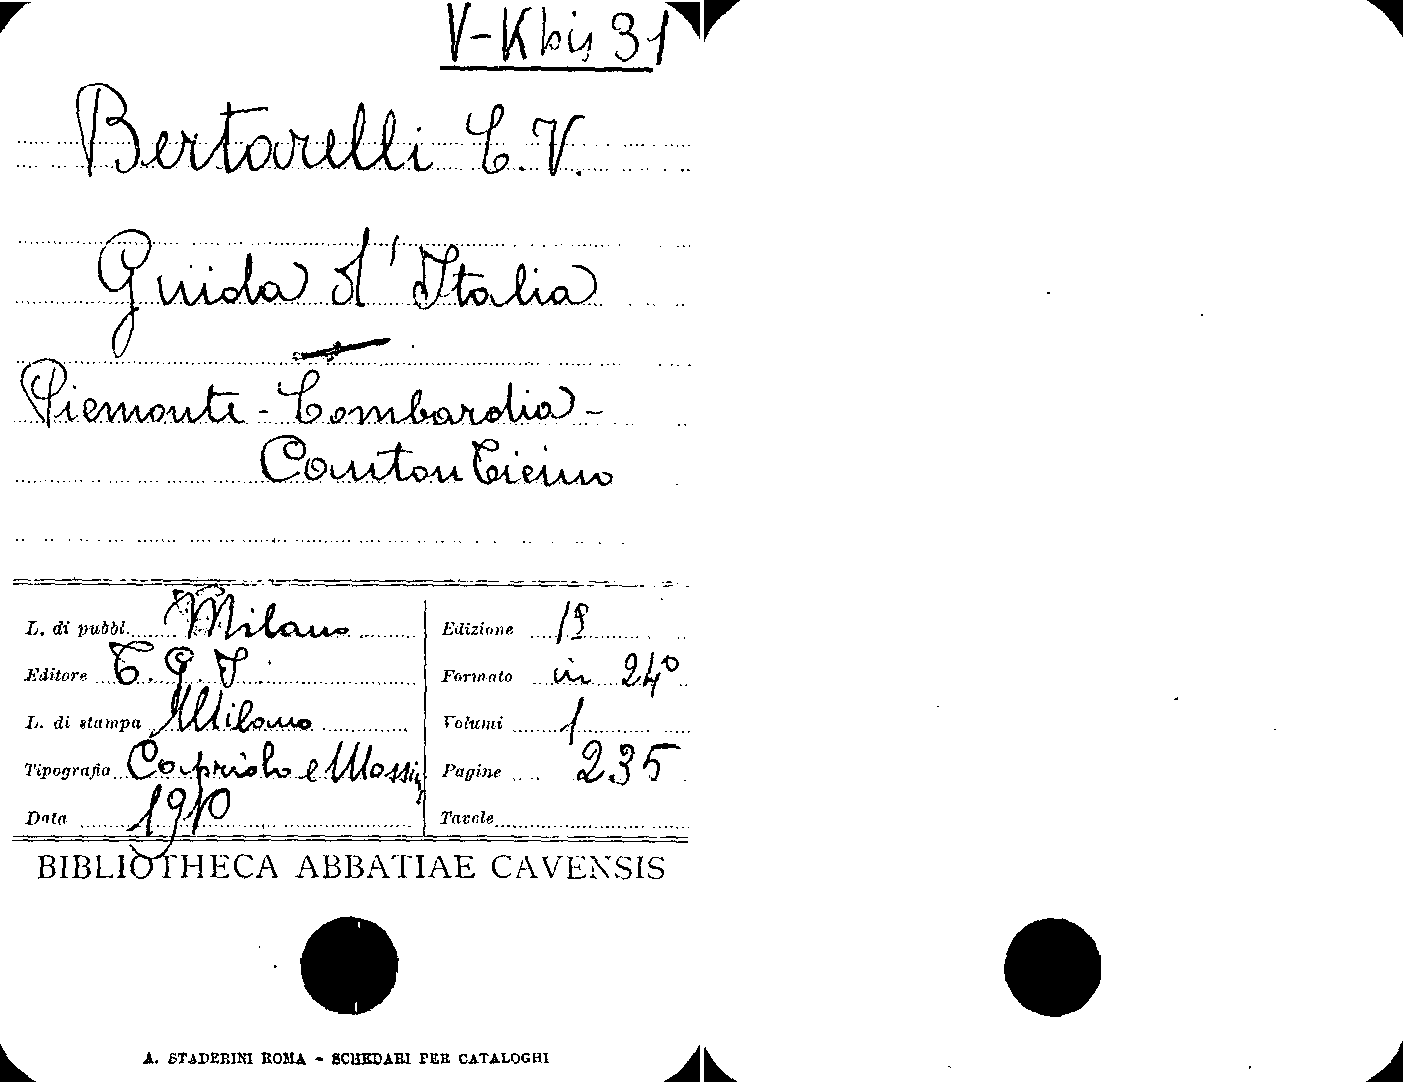 V-K bis 31
Bertarelli L. V.
Guida d'Italia
Piemonte - Lombardia -
Canton Ticino
L. di pubbl. Milano
Edizione 1ª
Editore T. C. I.
Formato in 24°
L. di stampa Milano
Volumi 1
Tipografia Capriolo e Massi
Pagine 235
Data 1910
Tavole
BIBLIOTHECA ABBATIAE CAVENSIS
A. STADERINI ROMA - SCHEDARI PER CATALOGHI